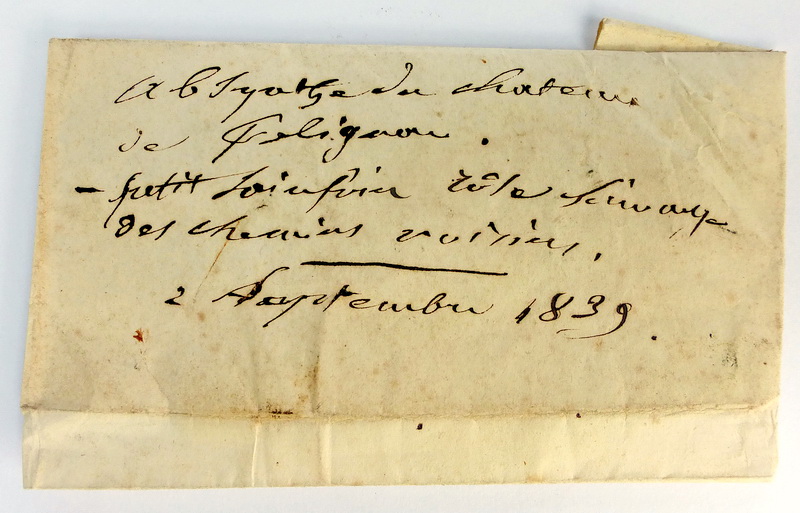 Absynthe du chateau
de Felignon.
- petit sainfoin sauvage
des chemins voisins.
2 Septembre 1839.